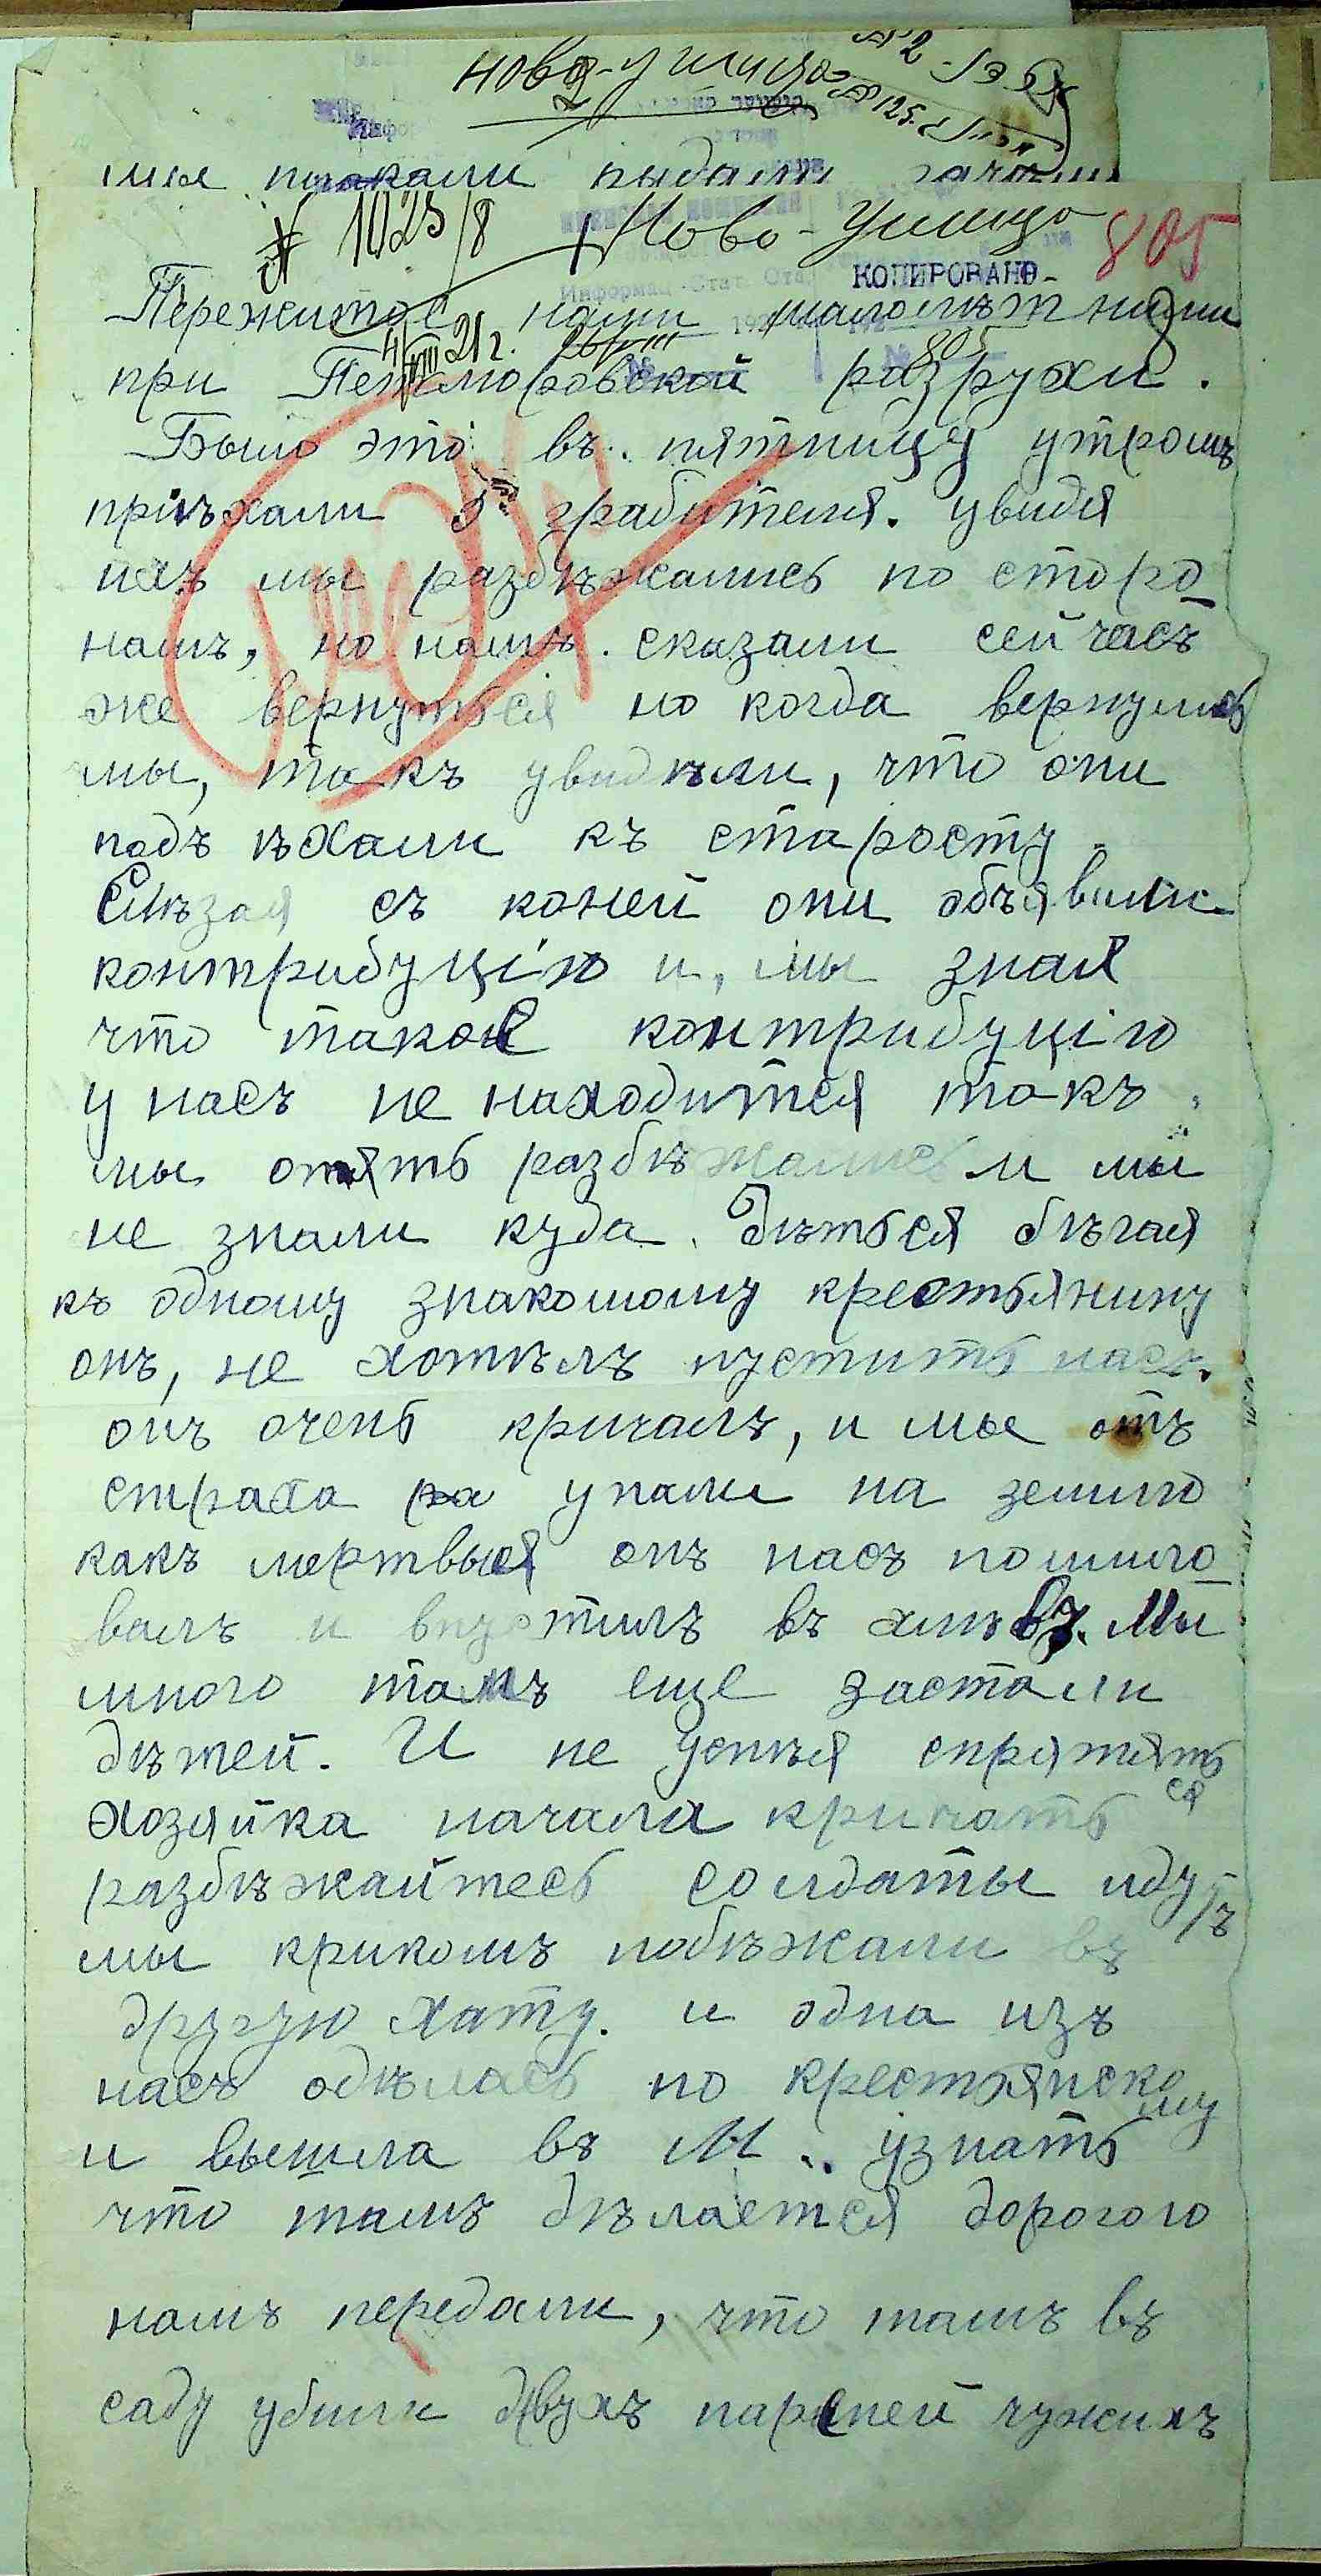 Ново-Ушица
мы плакали рыдали
№ 1025/8 Ново-Ушица 805
КОПИРОВАНО
Пережитое нами малолѣтними
4/VIII 21 г. 26/VIII № 805
при Петлюровской разрухи.
Было это въ пятницу утромъ
пріѣхали 3 грабителя. увидя
ихъ мы разбѣжались по сторо
намъ, но намъ сказали сейчасъ
же вернуться но когда вернулись
мы, такъ увидѣли, что они
подъѣхали къ старосту.
Слѣзая съ коней они объявили
контрибуцію и, мы зная
что такое контрибуцію
у насъ не находится такъ
мы опять разбѣжались и мы
не знали куда дѣться бѣгая
къ одному знакомому крестьянину
онъ, не хотѣлъ пустить насъ.
онъ очень кричалъ, и мы отъ
страха ра упали на землю
какъ мертвыя онъ насъ помило
валъ и впустилъ въ хлѣвъ. Мы
много тамъ еще застали
дѣтей. И не успѣя спрятять
ся
хозяйка начала кричать
разбѣжайтесь солдаты идутъ
мы крикомъ побѣжали въ
другую хату. и одна изъ
насъ одѣлась по крестьянско
му
и вышла въ М.. узнать
что тамъ дѣлается дорогою
намъ передали, что тамъ въ
саду убили двухъ парней чужихъ